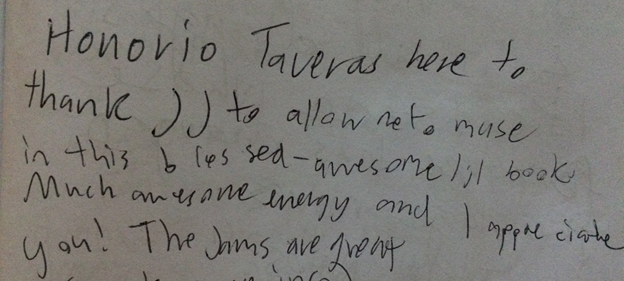 Honorio Taveras here to
thank JJ to allow me to muse
in this blessed-awesome lil book
Much awesome energy and I appreciate
you! The Jams are great